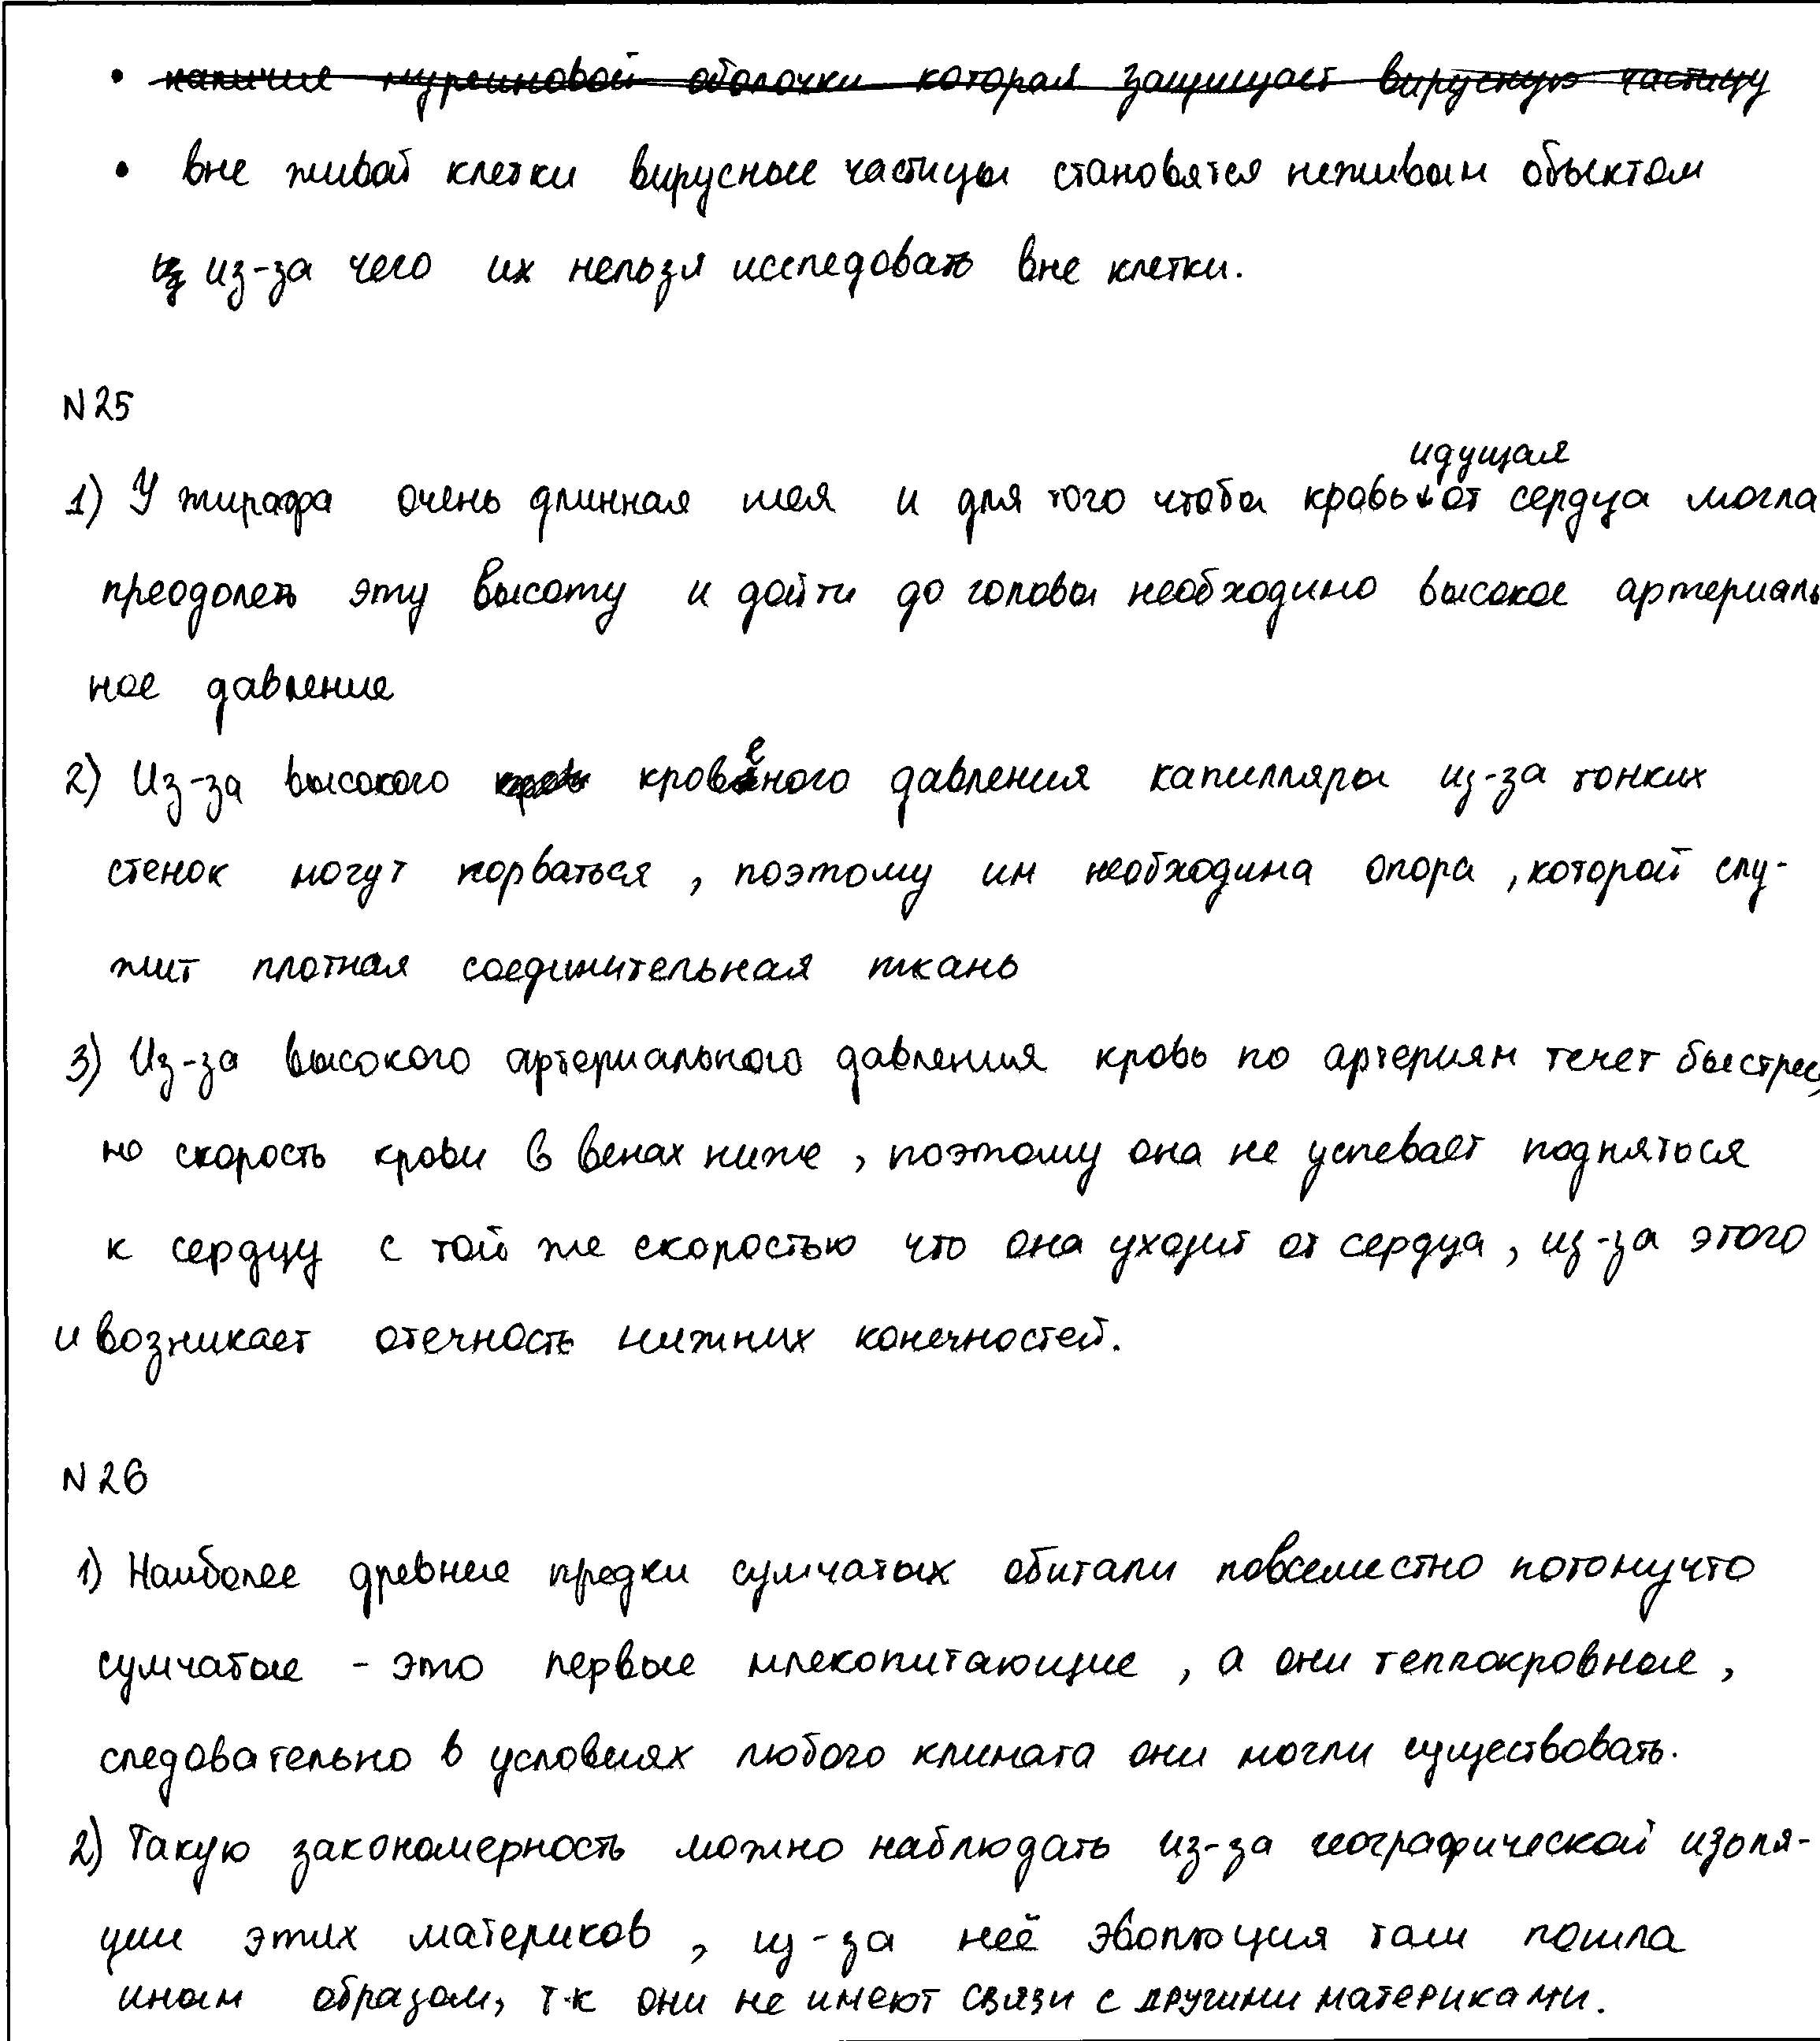 • наличие муреиновой оболочки которая защищает вирусную частицу
• вне живой клетки вирусные частицы становятся неживым объектом
из-за чего их нельзя исследовать вне клетки.
N25
идущая
1) У жирафа очень длинная шея и для того чтобы кровь от сердца могла
преодолеть эту высоту и дойти до головы необходимо высокое артериаль
ное давление
2) Из-за высокого кровеного давления капилляры из-за тонких
стенок могут порваться, поэтому им необходима опора, которой слу-
жит плотная соединительная ткань
3) Из-за высокого артериального давления кровь по артериям течет быстрее,
но скорость крови в венах ниже, поэтому она не успевает подняться
к сердцу с той же скоростью что она уходит от сердца, из-за этого
и возникает отечность нижних конечностей.
N26
1) Наиболее древние предки сумчатых обитали повсеместно потомучто
сумчатые - это первые млекопитающие, а они теплокровные,
следовательно в условиях любого климата они могли существовать.
2) Такую закономерность можно наблюдать из-за географической изоля-
ции этих материков, из-за неё эволюция там пошла
иным образом, т.к они не имеют связи с другими материками.